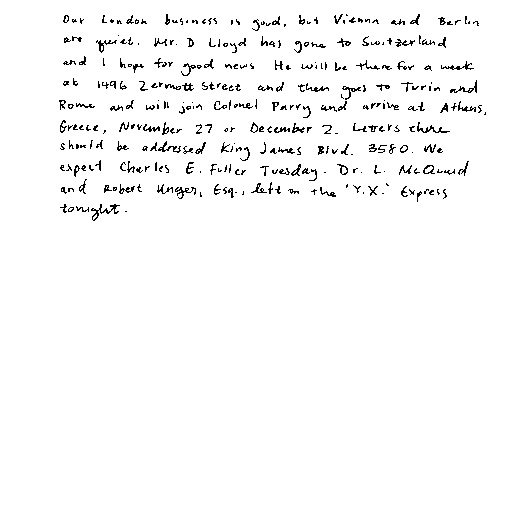 Our London business is good, but Vienna and Berlin
are quiet. Mr. D Lloyd has gone to Switzerland
and I hope for good news He will be there for a week
at 1496 Zermott Street and then goes to Turin and
Rome and will join Colonel Parry and arrive at Athens,
Greece, November 27 or December 2. Letters there
should be addressed King James Blvd. 3580. We
expect Charles E. Fuller Tuesday. Dr. L. McQuaid
and Robert Unger, Esq., left on the 'Y.X.' Express
tonight.